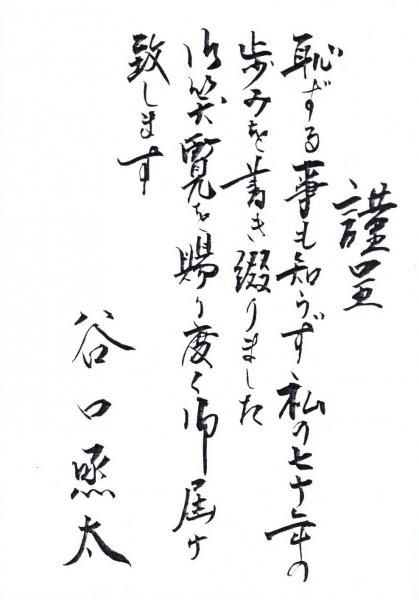 謹呈
恥ずる事も知らず私の七十年の
歩みを書き綴りました
御笑覧を賜り度く御届け
致します
谷口照太